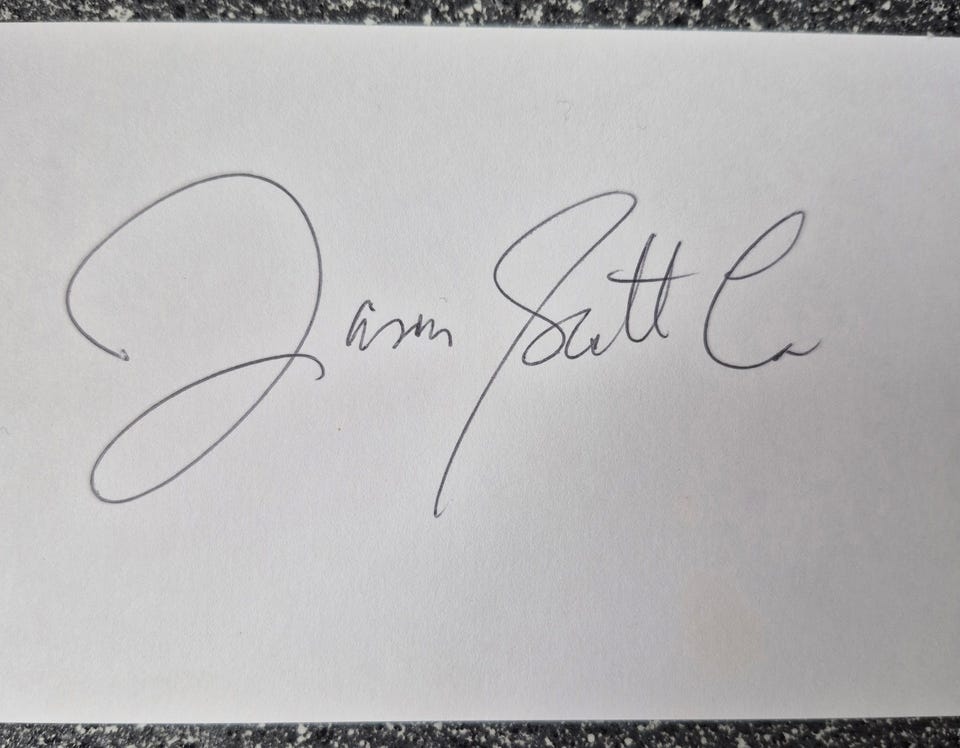 Jason Scott Lee